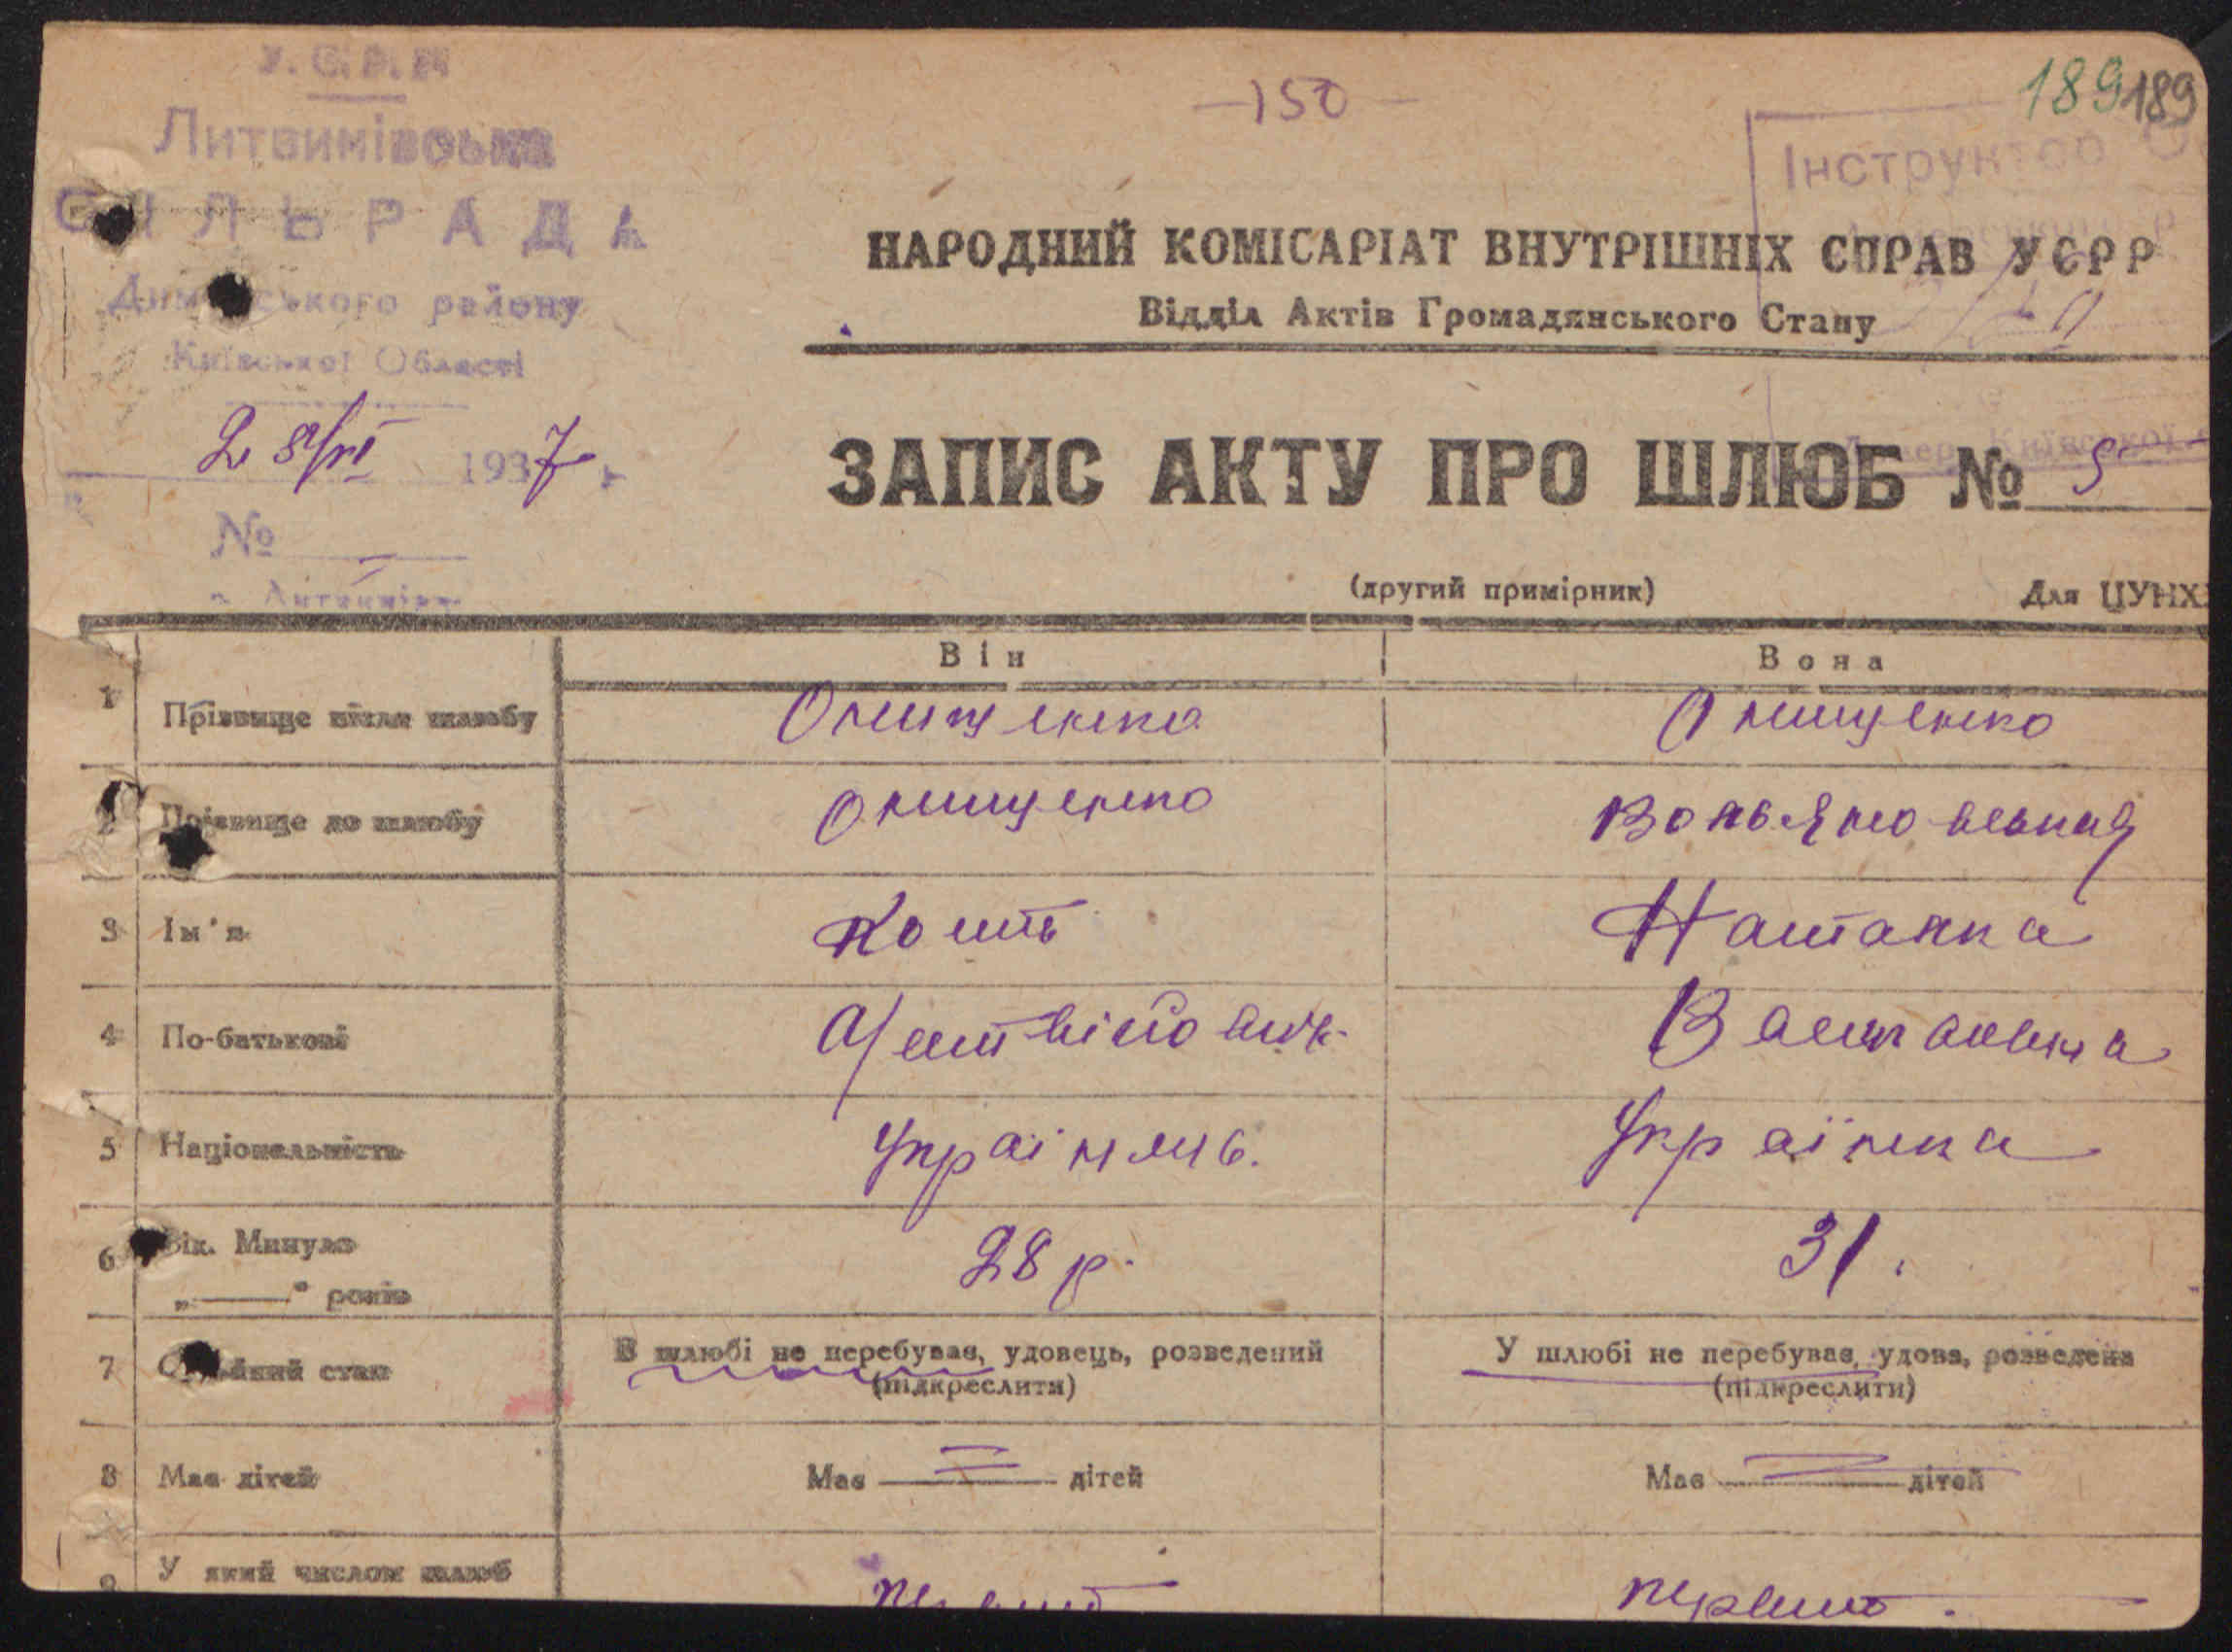 У.С.Р.Р.
Литвинівська
СІЛЬРАДА
Димерського району
Київської Області
28/VI 1937 р
№
с. Литвинівка
-150-
189 189
Інструктор
НАРОДНИЙ КОМІСАРІАТ ВНУТРІШНІХ СПРАВ УСРР
Відділ Актів Громадянського Стану
ЗАПИС АКТУ ПРО ШЛЮБ № 5
(другий примірник) Для ЦУНХ
Він Вона
1 Прізвище після шлюбу Онищенко Онищенко
2 Прізвище до шлюбу Онищенко
3 Ім'я Кость Наталка
4 По-батькові
5 Національність Українець. Українка
6 Вік. Минуло 28 р. 31.
„——“ років
7 Сімейний стан В шлюбі не перебував, удовець, розведений У шлюбі не перебував, удова, розведена
(підкреслити) (підкреслити)
8 Має дітей Має — дітей Має — дітей
9 У який числом шлюб первий первий.